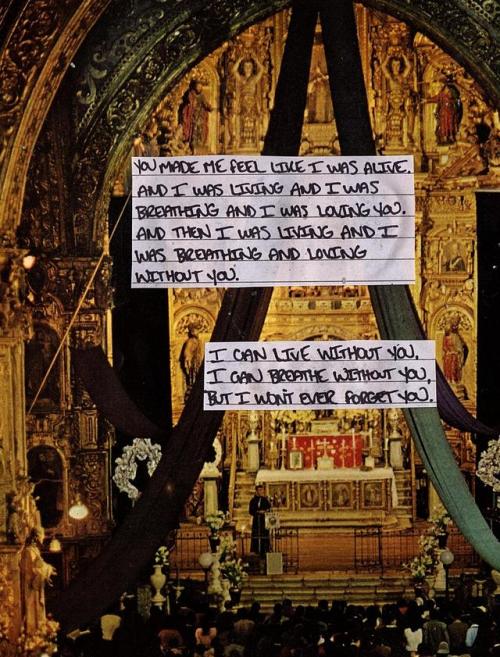 YOU MADE ME FEEL LIKE I WAS ALIVE.
AND I WAS LIVING AND I WAS
BREATHING AND I WAS LOVING YOU.
AND THEN I WAS LIVING AND I
WAS BREATHING AND LOVING
WITHOUT YOU.
I CAN LIVE WITHOUT YOU,
I CAN BREATHE WITHOUT YOU,
BUT I WON'T EVER FORGET YOU.